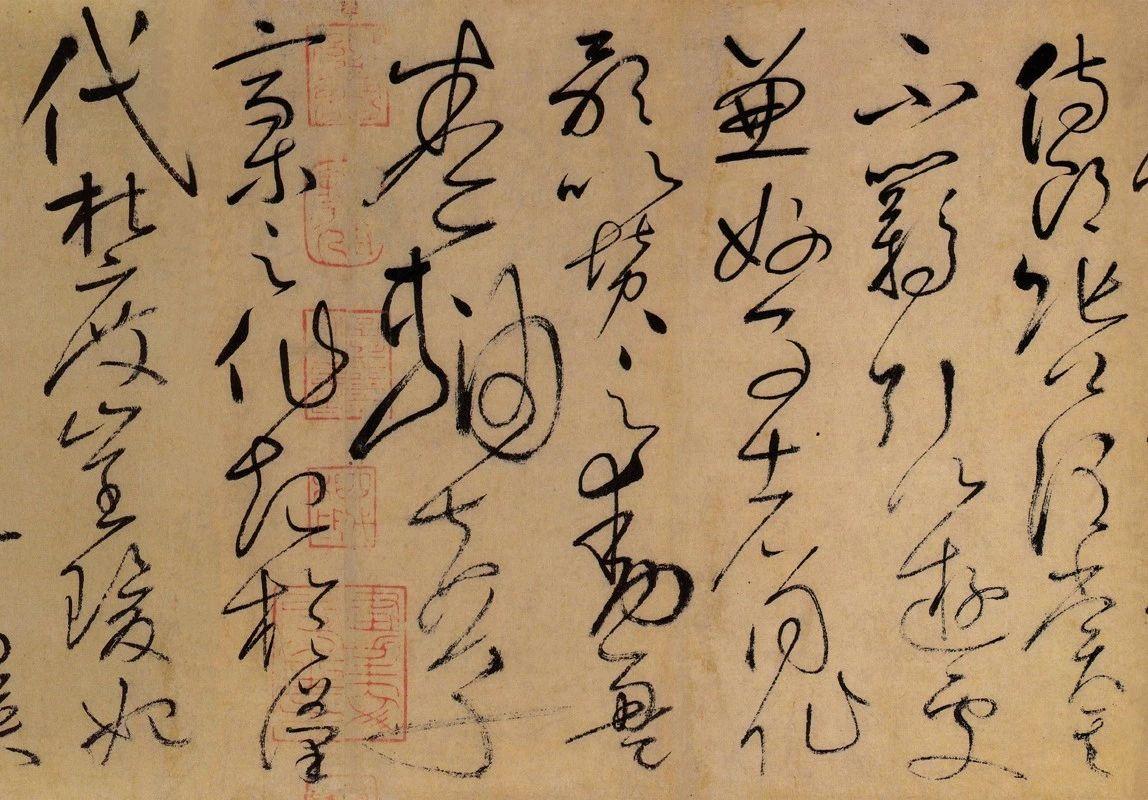 侍郎張公謂賞其
不羈引以遊處
兼好事者同作
歌以贊之動盈
卷軸夫草
稾之作起於漢
代杜度崔瑗始